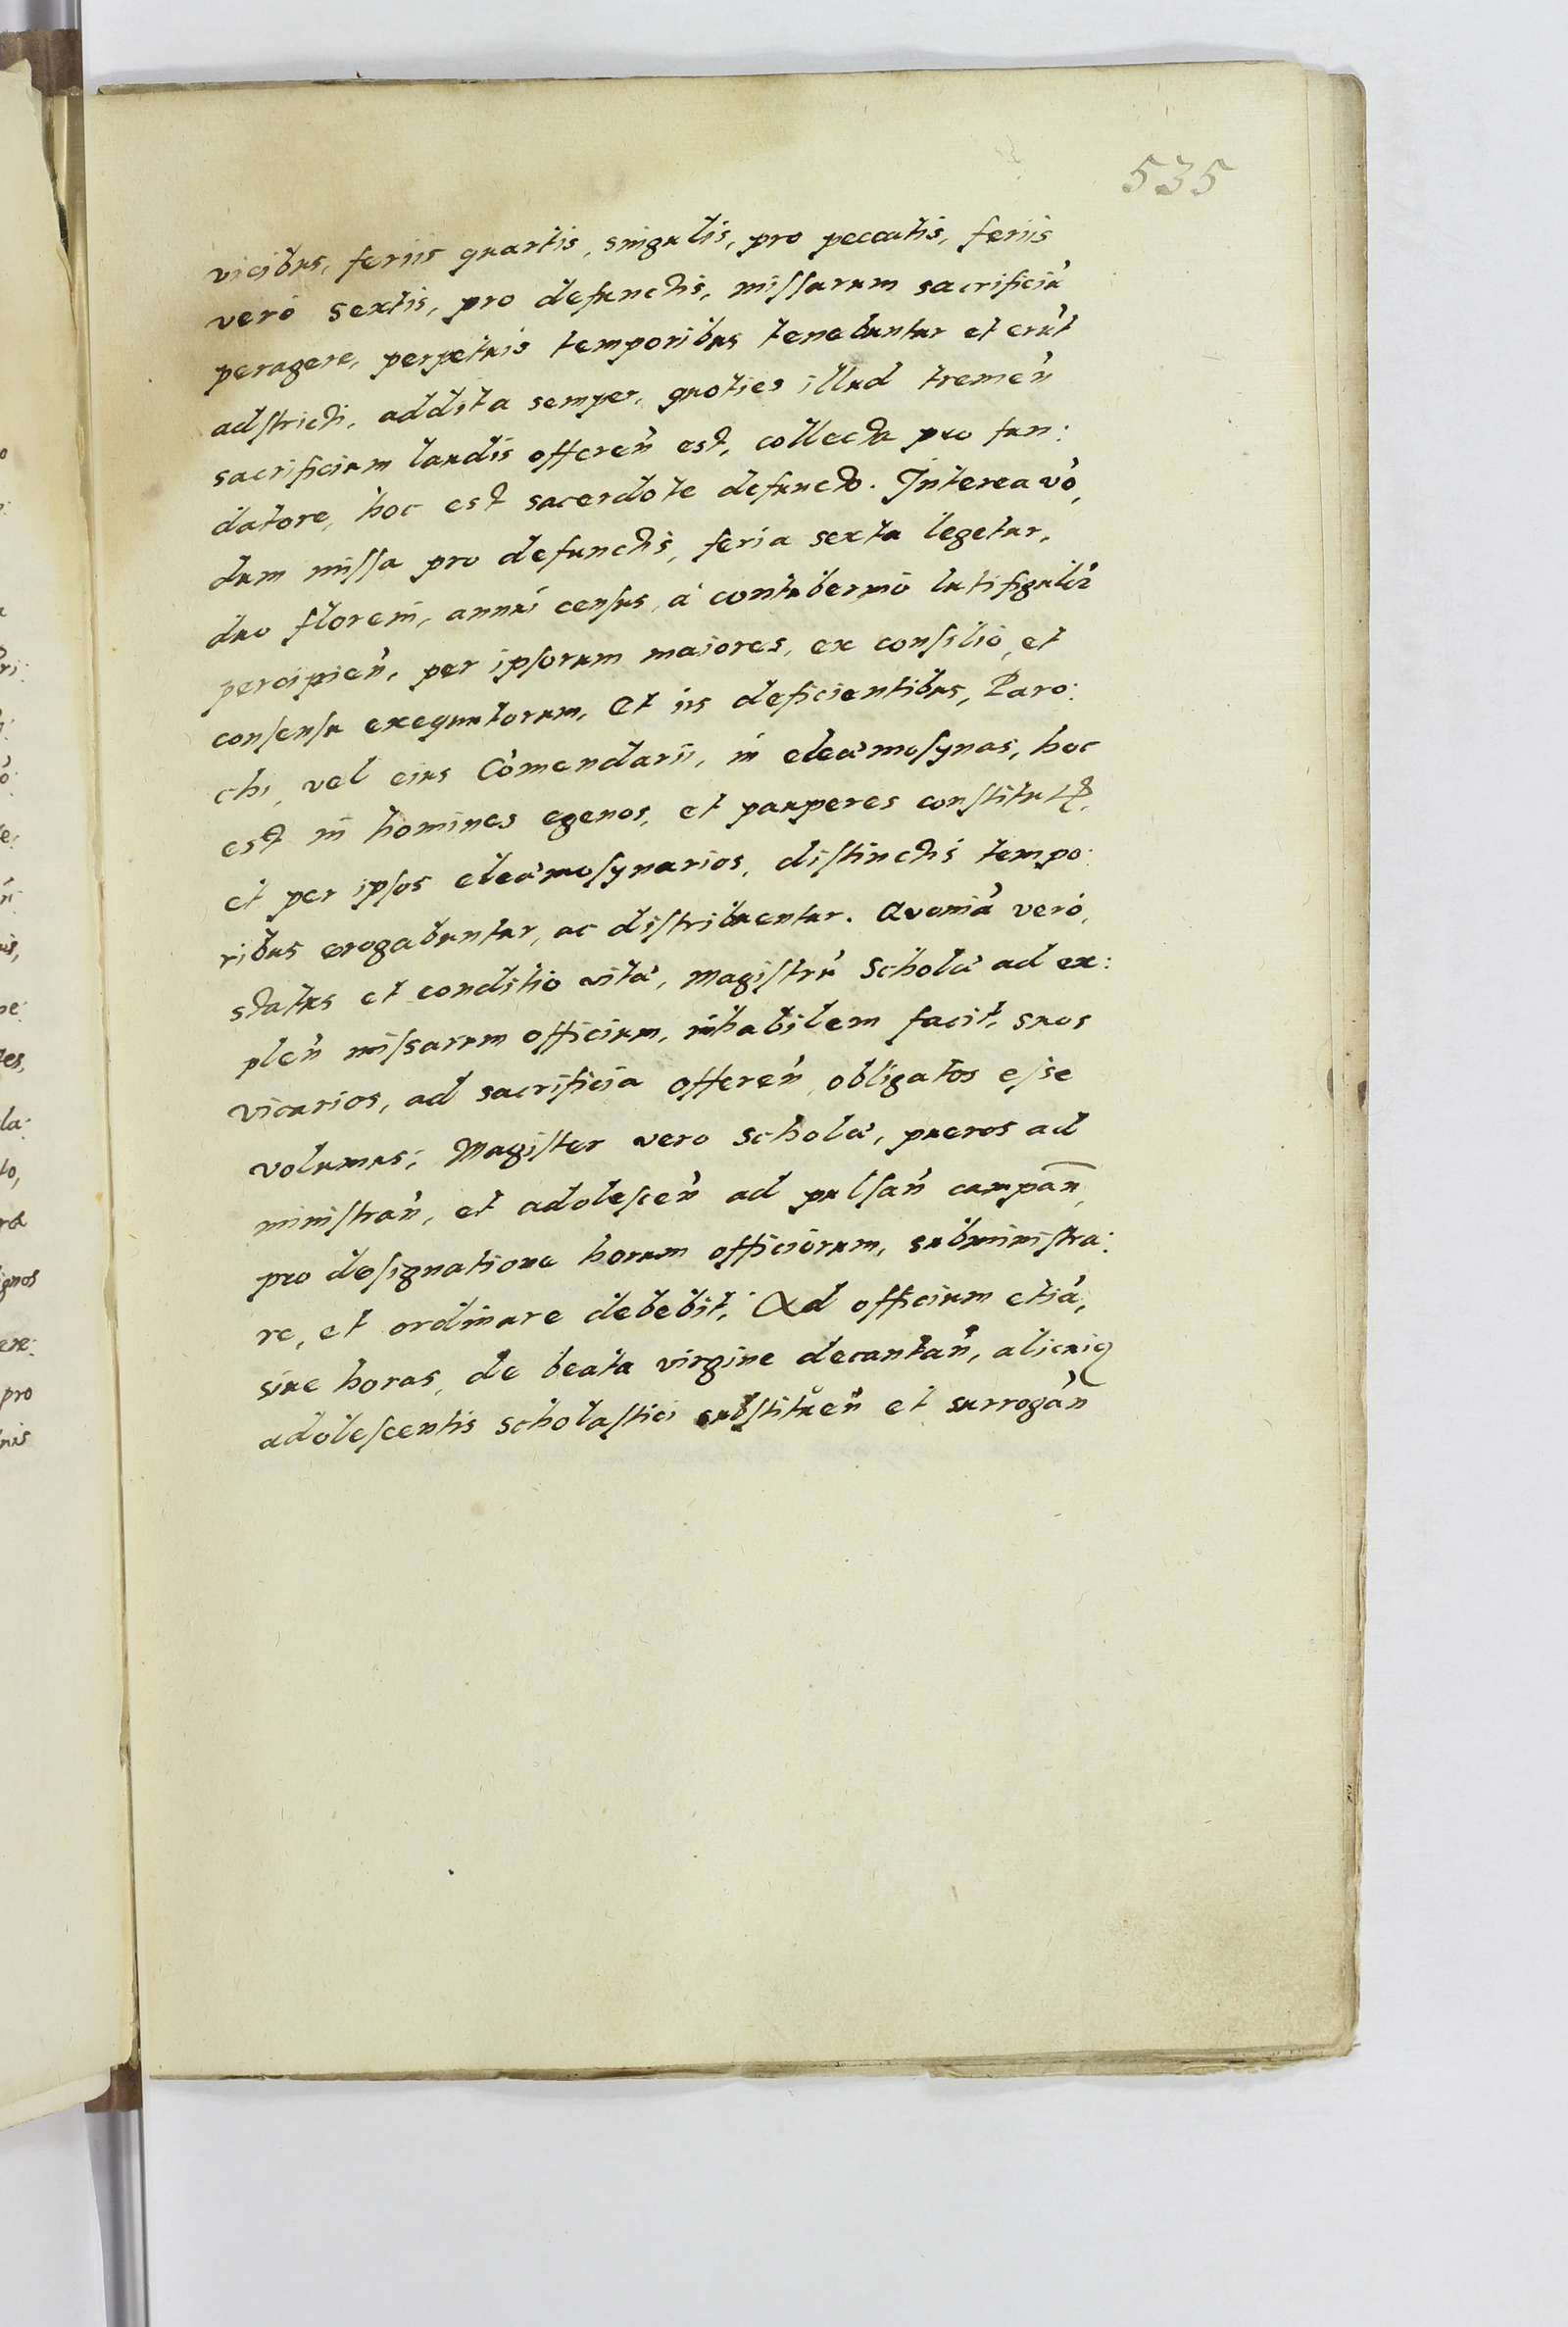 535
vicibus, feriis quartis, singulis, pro peccatis, feriis
verò sextis, pro defunctis, missarum sacrificià
peragere, perpetuis temporibus tenebuntur et erùt
adstricti, addita semper, quoties illud tremeǹ
sacrificium laudis offereǹ est, collecta pro fun:
datore, hoc est sacerdote defuncto. Interea vò,
dum missa pro defunctis, feria sexta legetur,
duo floreni, annui census, à contubernio lutifigulor
percipieǹ, per ipsorum maiores, ex consilio, et
consensu exequutorum, et iis deficientibus, Paro:
chi, vel eius Còmendarii, in eleàmosynas, hoc
est in homines egenos, et pauperes constitut,
et per ipsos eleàmosynarios, distinctis tempo:
ribus erogabuntur, ac distribuentur. Quonià verò,
status et conditio vità, magistrù scholà ad ex:
pleǹ missarum officium, inhabilem facit, suos
vicarios, ad sacrificia offereǹ obligatos esse
volumus; Magister vero scholà, pueros ad
ministraǹ, et adolesceǹ ad pulsaǹ campan̄,
pro designatione horum officiorum, subministra:
re, et ordinare debebit; Ad officium etià,
siue horas, de beata virgine decantaǹ, alicuiq
adolescentis scholastici substitueǹ et surrogàn